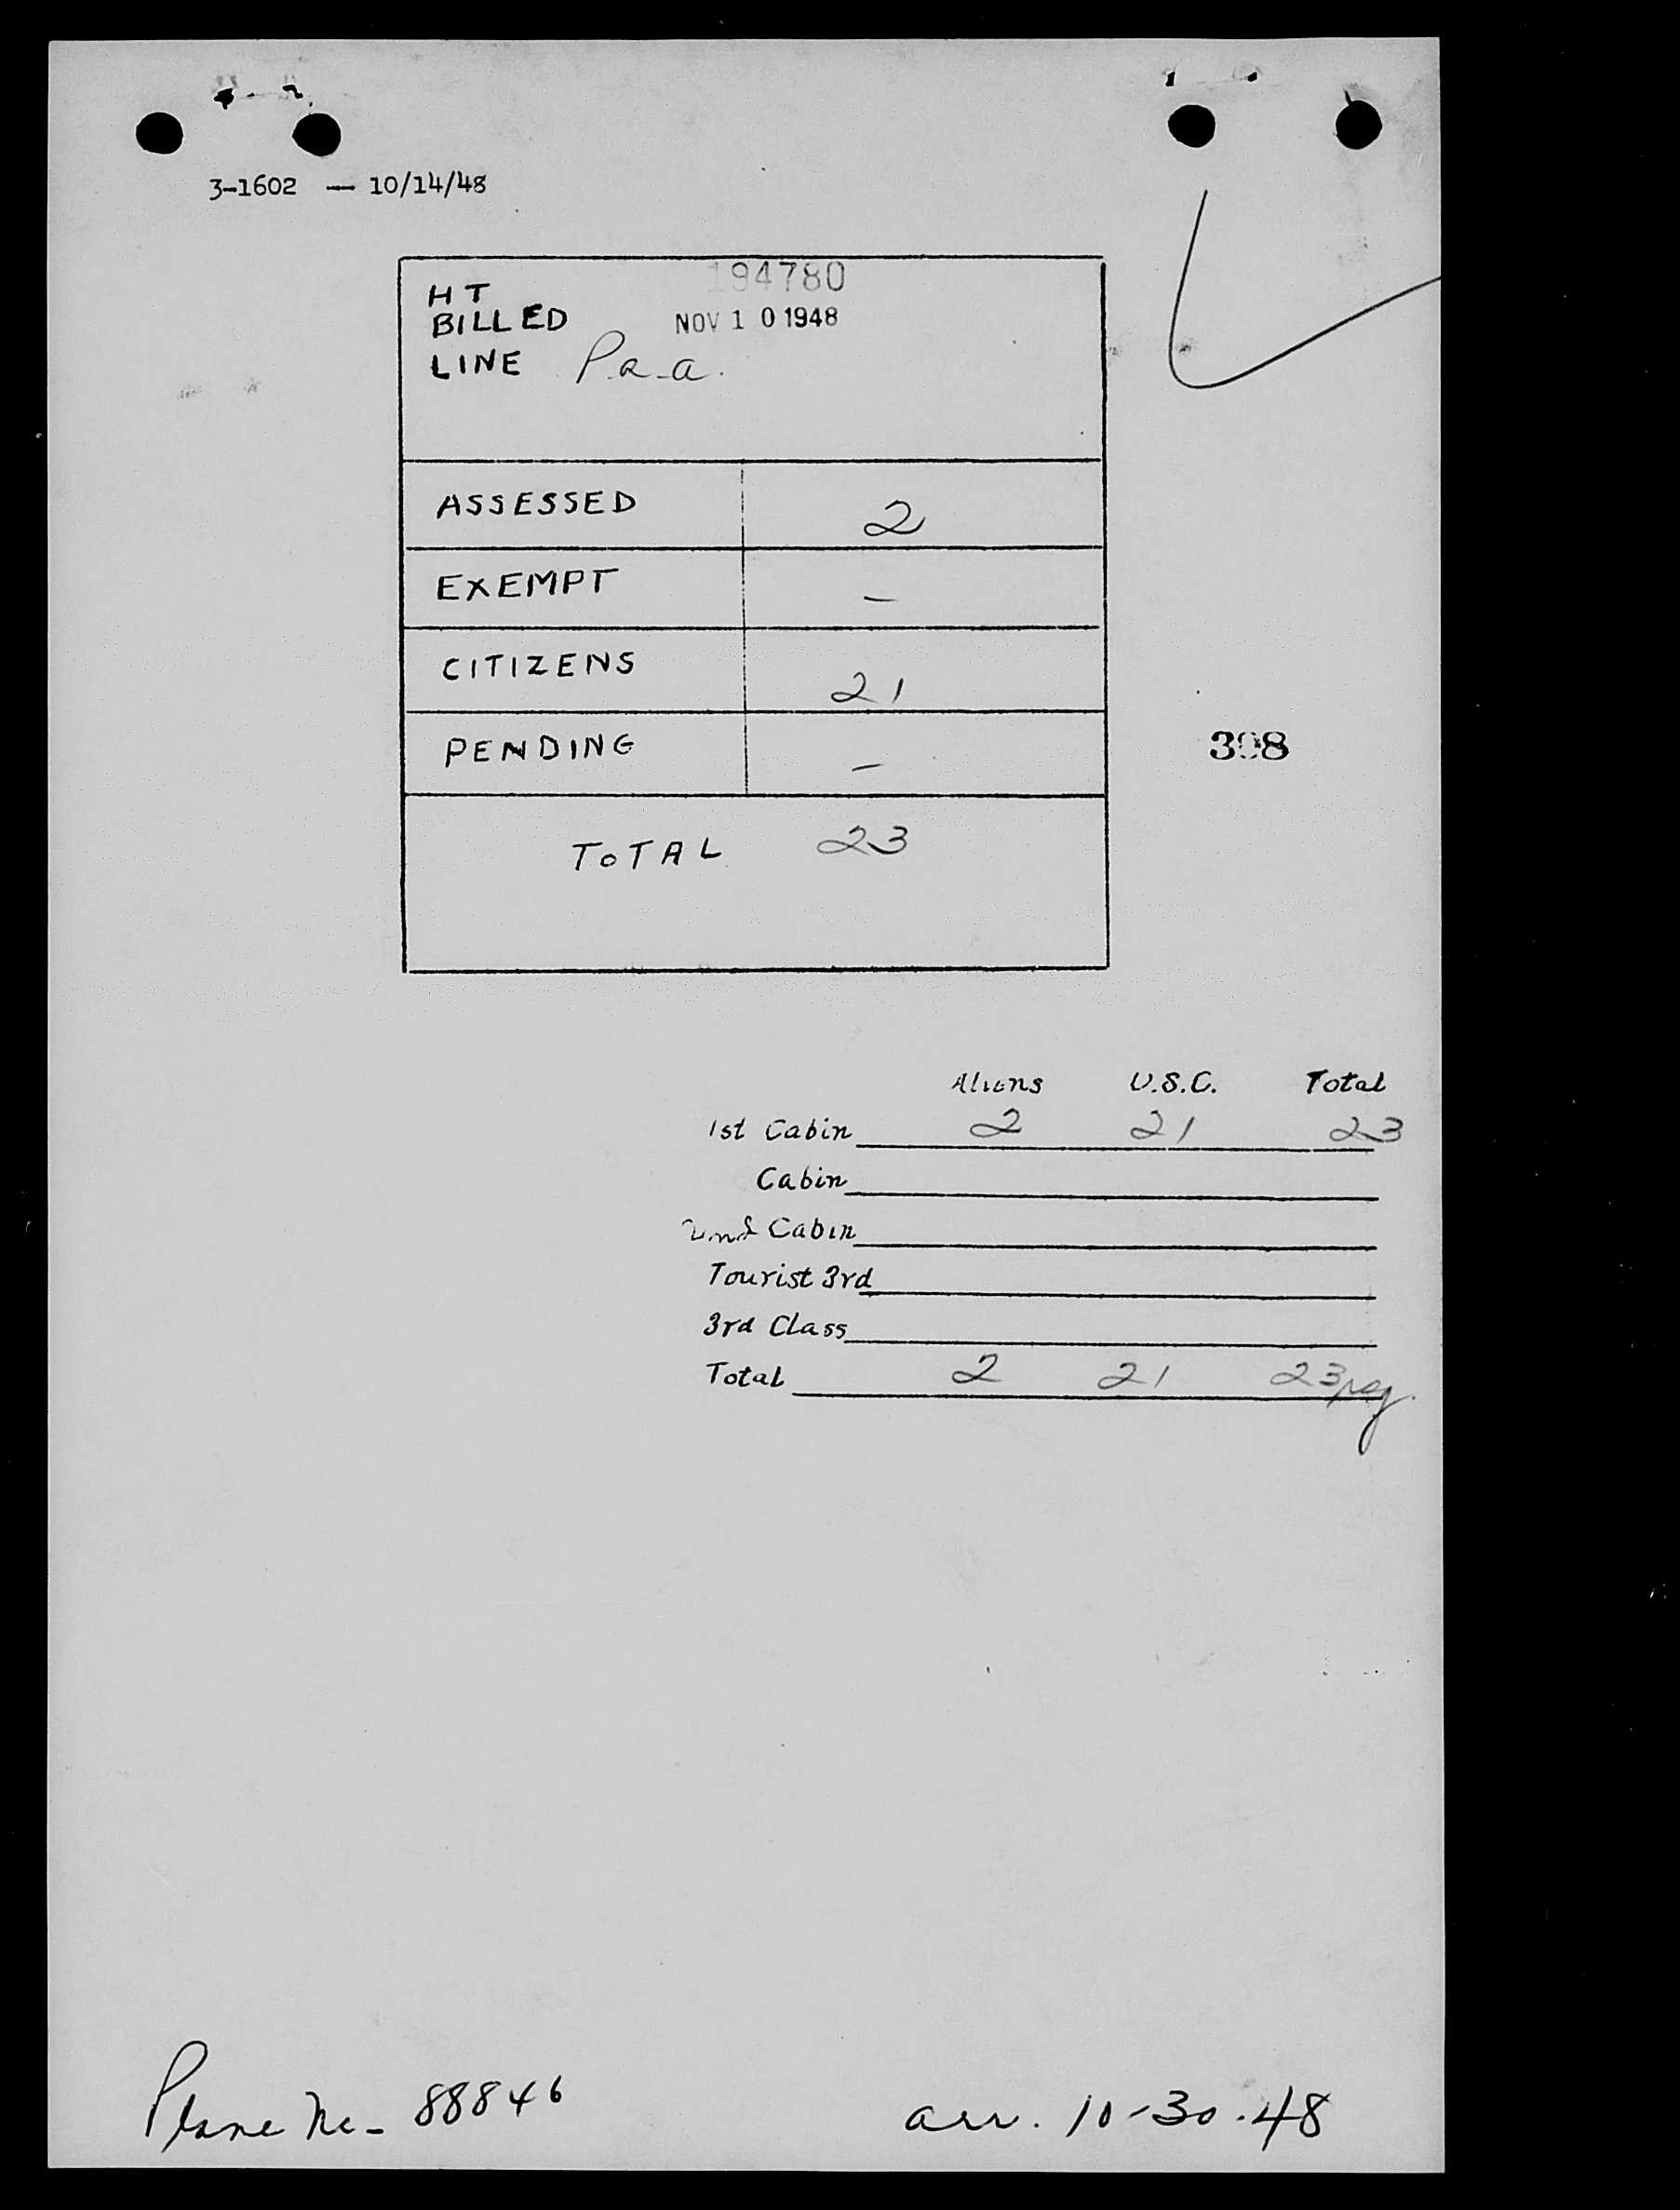 3-1602 — 10/14/48
194780
HT
BILLED NOV 10 1948
LINE P.a.a.
ASSESSED 2
EXEMPT –
CITIZENS 21
PENDING –
398
TOTAL 23
Aliens U.S.C. Total
1st Cabin 2 21 23
Cabin
2nd Cabin
Tourist 3rd
3rd Class
Total 2 21 23
Plane No- 88846 arr. 10-30-48